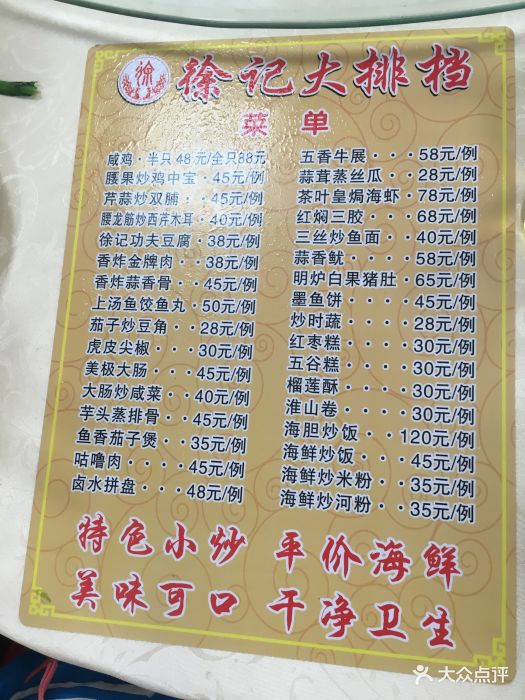 徐 徐记大排档
菜单
咸鸡·半只48元/全只88元
腰果炒鸡中宝··45元/例
芹蒜炒双脯···45元/例
腰龙筋炒西芹木耳··40元/例
徐记功夫豆腐··38元/例
香炸金牌肉···38元/例
香炸蒜香骨···45元/例
上汤鱼饺鱼丸··50元/例
茄子炒豆角···28元/例
虎皮尖椒····30元/例
美极大肠····45元/例
大肠炒咸菜···40元/例
芋头蒸排骨···45元/例
鱼香茄子煲···35元/例
咕噜肉·····45元/例
卤水拼盘····48元/例
五香牛展···58元/例
蒜茸蒸丝瓜··28元/例
茶叶皇焗海虾·78元/例
红焖三胶···68元/例
三丝炒鱼面··40元/例
蒜香鱿····58元/例
明炉白果猪肚·65元/例
墨鱼饼····45元/例
炒时蔬····28元/例
红枣糕····30元/例
五谷糕····30元/例
榴莲酥····30元/例
淮山卷····30元/例
海胆炒饭···120元/例
海鲜炒饭···45元/例
海鲜炒米粉··35元/例
海鲜炒河粉··35元/例
特色小炒 平价海鲜
美味可口 干净卫生
大众点评